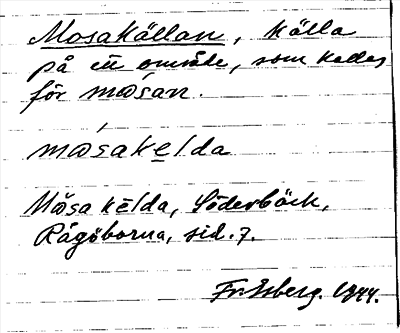 Mosakällan, källa
på ett område, som kallas
för mɷsan.
mɷ́sakelda
Måsa kēlda, Söderbäck,
Rågöborna, sid. 7.
1944.